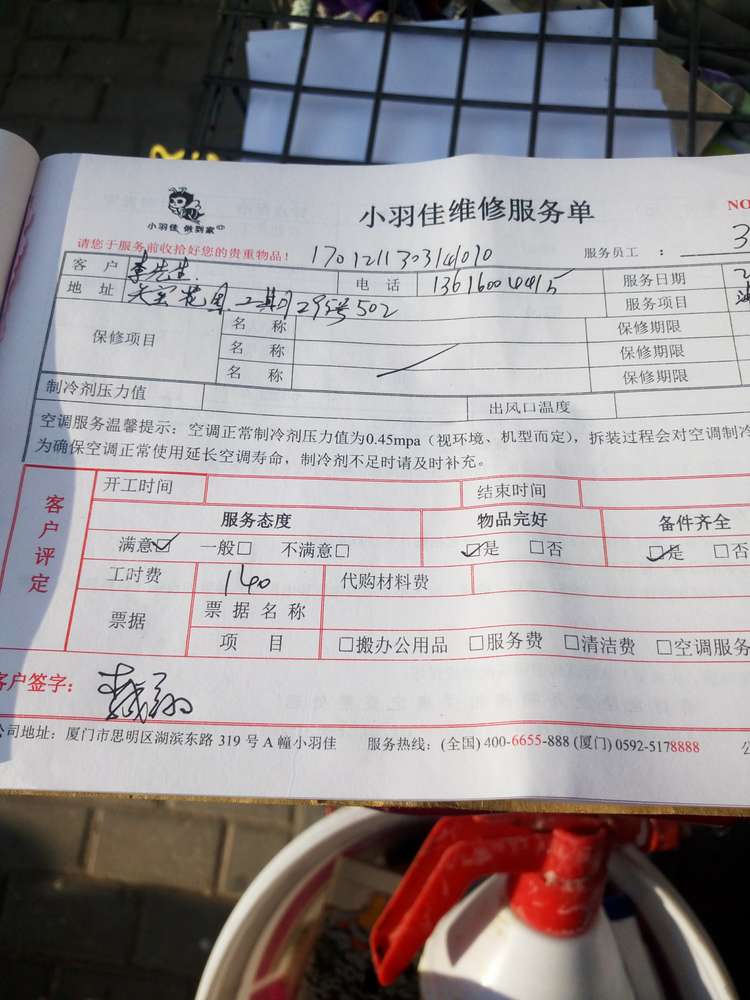 小羽佳 做到家
小羽佳维修服务单
NO
请您于服务前收拾好您的贵重物品！ 服务员工 ： 3
客 户 李先生 电 话 服务日期
地 址 二期29号502 服务项目
保修项目 名 称 保修期限
名 称 保修期限
名 称 保修期限
制冷剂压力值 出风口温度
空调服务温馨提示：空调正常制冷剂压力值为0.45mpa（视环境、机型而定），拆装过程会对空调制冷
为确保空调正常使用延长空调寿命，制冷剂不足时请及时补充。
客户评定
开工时间 结束时间
服务态度 物品完好 备件齐全
满意☑ 一般□ 不满意□ ☑是 □否 ☑是 □否
工时费 140 代购材料费
票据 票 据 名 称
项 目 □搬办公用品 □服务费 □清洁费 □空调服务
客户签字：
公司地址：厦门市思明区湖滨东路 319 号 A 幢小羽佳 服务热线：(全国) 400-6655-888 (厦门) 0592-5178888